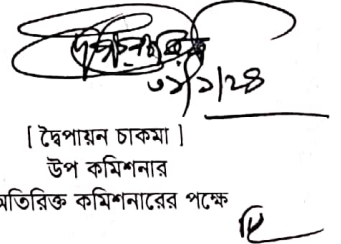 ৩১/১/২৪
[ দ্বৈপায়ন চাকমা ]
উপ কমিশনার
অতিরিক্ত কমিশনারের পক্ষে